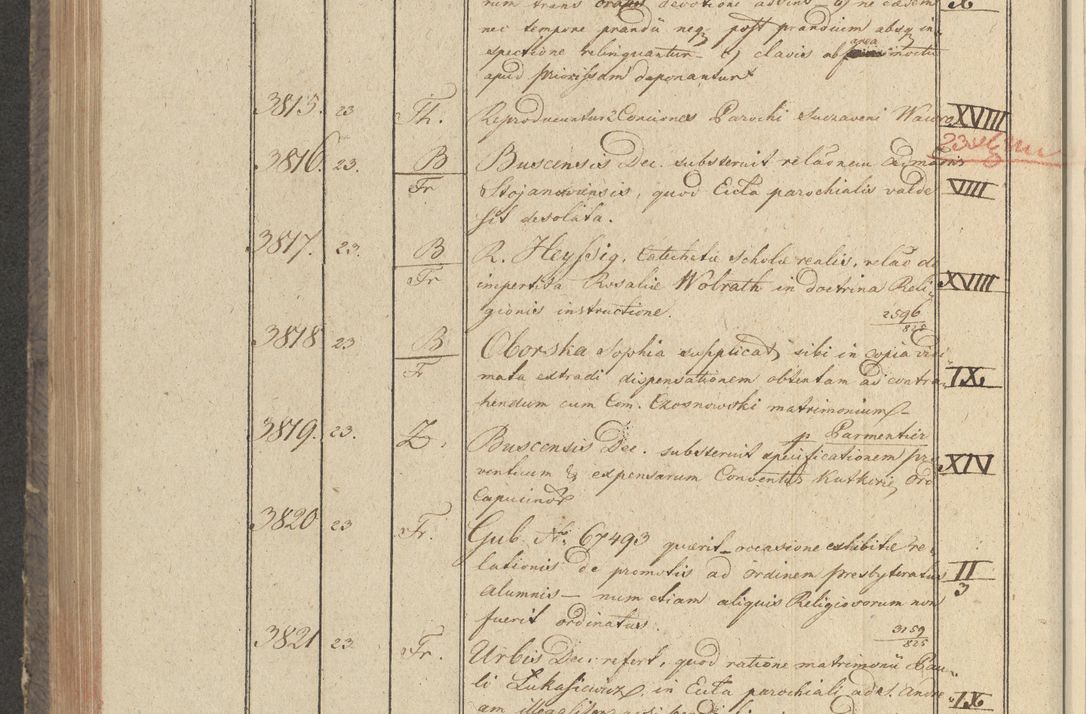 nec tempore prandii neq post prandium absq in-
spectione relinquantur et clavis ab
area
apud Priorissam deponantur
3815. 23 Th. Reproducuntur Conciones Parochi Suczaveni XVIII
3816. 23. B Buscensis Dec. substernit relaõnem
Fr Stojanoviensis, quod Eccla parochialis valde VIII
sit desolata.
3817. 23. B R. Heyssig, Catechetae scholae realis, relaõ de
Fr impertita Rosaliae Wolrath in doctrina Reli- XVIII
gionis instructione. 2596
825
3818 23 B Oborska Sophia supplicat, sibi in copia vidi
Fr mata extradi dispensationem obtentam ad contra- IX
hendum cum Com. Czosnowski matrimonium
p Parmentier
3819. 23. Z. Buscensis Dec. substernit specificationem pro XIV
ventuum & expensarum Conventus Kutkorz, Ord
Capucinor
3820 23 Fr. Gub. No. 67493 quaerit occasione exhibitae re-
lationis de promotis ad ordinem presbyteratus II
alumnis — num etiam aliquis Religiosorum non 3
fuerit ordinatus. 3159
825
3821 23 Fr. Urbis Dec. refert, quod ratione matrimonii Pau-
li Lukasiewicz, in Eccla parochiali ad S. Andre- IX
am